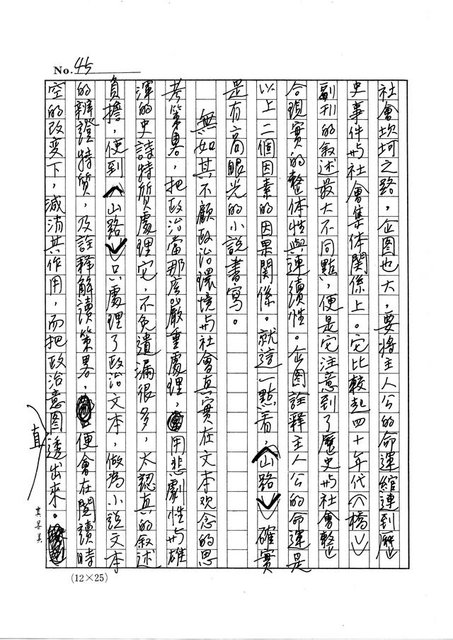 No. 45
社會坎坷之路，企图也大，要將主人公的命運綰連到歷
史事件与社會集体關係上。它比較起四十年代《橋》
副刊的敘述最大不同點，便是它注意到了歷史与社會整
合現實的整体性與連續性。企图詮釋主人公的命運是
以上二個因素的因果關係。就這一點看，《山路》確實
是有高眼光的小說書寫。
無如其不顧政治環境与社會真實在文本观念的思
考策畧，把政治當那麼嚴重處理，用悲劇性与雄
渾的史詩特質處理它，不免遺漏很多，太認真的叙述
負擔，使到《山路》只處理了政治文本，做為小說文本
的辯證特質，及詮釋解讀策畧，便會在閱讀時
空的改变下，減消其作用，而把政治意图透出來。
(12×25)